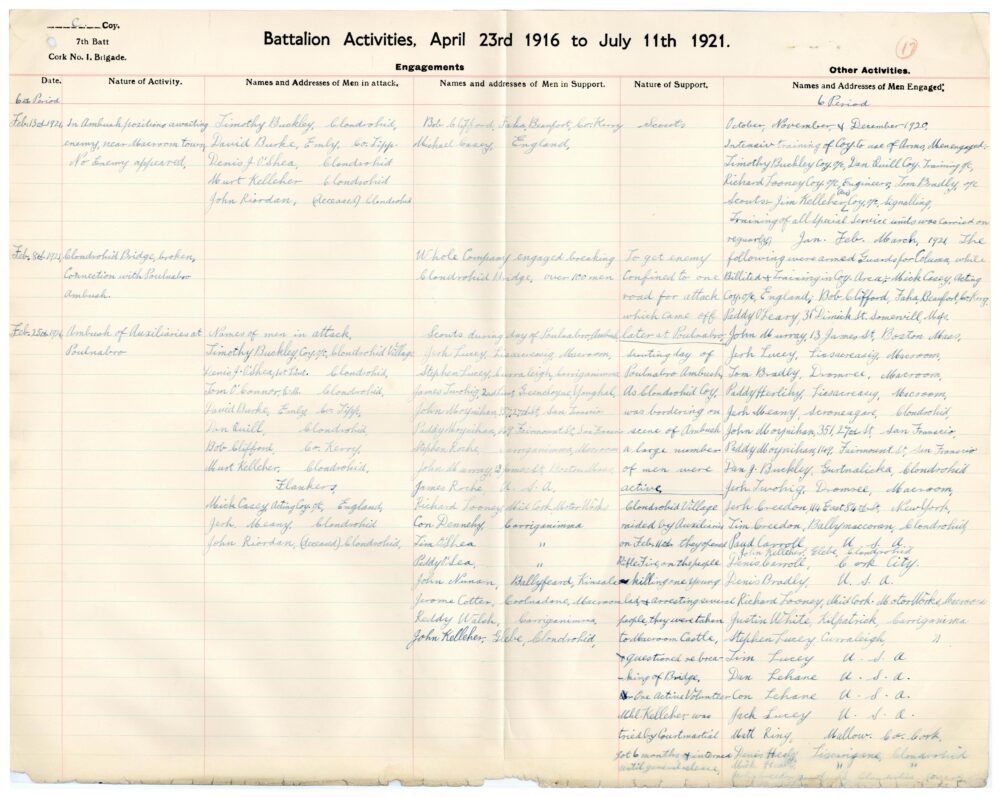 C. Coy.
7th Batt
Cork No. 1. Brigade.
Battalion Activities, April 23rd 1916 to July 11th 1921.
17
Engagements
Other Activities.
Date.
Nature of Activity.
Names and Addresses of Men in attack.
Names and addresses of Men in Support.
Nature of Support.
Names and Addresses of Men Engaged.
6th Period
Feb. 13th 1921
In Ambush positions awaiting
enemy, near Macroom town,
No Enemy appeared.
Timothy Buckley, Clondrohid,
David Burke, Emly, Co. Tipp.
Denis J. O'Shea, Clondrohid
Murt Kelleher Clondrohid
John Riordan, (deceased) Clondrohid
Bob Clifford, Faha, Beaufort, Co. Kerry
Michael Casey, England,
Scouts
Feb. 8th 1921
Clondrohid Bridge, broken,
Connection with Poulnabro
Ambush.
Whole Company engaged breaking
Clondrohid Bridge, over 100 men
To get enemy
Confined to one
road for attack
which came off
later at Poulnabro,
Feb. 25th 1921
Ambush of Auxiliaries at
Poulnabro
Names of men in attack,
Timothy Buckley Coy. o/c, Clondrohid Village
Denis J. O'Shea, 1st Lieut. Clondrohid,
Tom O'Connor, Clondrohid,
David Burke, Emly Co. Tipp,
Dan Quill, Clondrohid,
Bob Clifford, Co. Kerry,
Murt Kelleher, Clondrohid,
Flankers,
Mick Casey Acting Coy. o/c, England,
Jerh. Meany, Clondrohid
John Riordan, (deceased) Clondrohid,
Scouts during day of Poulnabro Ambush
Jerh Lucey, Lissacreasig, Macroom,
Stephen Lucey, Curraleigh, Carriganimma
James Twohig, Greencloyne Youghal,
John Moynihan, 351, 27th St. San Francisco
Paddy Moynihan, 1169 Fairmount St, San Francisco
Stephen Roche, Carriganimma, Macroom
John Murray, 13 James St, Boston Mass.
James Roche, U. S. A.
Richard Tooney, Mid Cork Motor Works
Con Dennehy, Carriganimma
Tim O'Shea "
Paddy O'Shea, "
John Nunan, Ballyfeard, Kinsale
Jerome Cotter, Coolnadane, Macroom
Reddy Walsh, Carriganimma,
John Kelleher, Glebe, Clondrohid,
Scouting day of
Poulnabro Ambush,
As Clondrohid Coy,
was bordering on
scene of Ambush
a large number
of men were
active,
Clondrohid Village
raided by Auxiliaries
on Feb. 11th they opened
Rifle Fire, on the people
killing one young
lad & arresting several
people, they were taken
to Macroom Castle,
& questioned re brea-
king of Bridge,
& One Active Volunteer
Ml. Kelleher was
tried by Courtmartial
got 6 months & interned
until general release,
6 Period
October, November & December 1920.
Intensive training of Coy to use of Arms, Men engaged:-
Timothy Buckley Coy. o/c, Dan Quill Coy. Training o/c,
Richard Tooney Coy. o/c, Engineers, Tom Bradly, o/c
Scouts & Jim Kelleher, Coy. o/c, Signalling,
Training of all Special Service units was carried on
regularly, Jan. Feb. March, 1921 The
following were armed Guards for Column, while
Billited & Training in Coy. Area:- Mick Casey, Acting
Coy. o/c, England, Bob Clifford, Faha, Beaufort, Co. Kerry.
Paddy O'Leary, 31 Dimick St. Somervill, Mass.
John Murray, 13 James St, Boston Mass,
Jerh Lucey, Lissacreasig, Macroom,
Tom Bradly, Dromree, Macroom,
Paddy Herlihy, Lissacreasig, Macroom,
Jerh Meany, Scroneagare, Clondrohid,
John Moynihan, 351, 27th St, San Francisco,
Paddy Moynihan, 1169, Fairmount St, San Francisco
Dan J. Buckley, Gurtnalicka, Clondrohid
Jerh Twohig, Dromree, Macroom,
Jerh Creedon, East St, New York,
Tim Creedon, Ballymaccoran, Clondrohid,
Paud Carroll U. S. A
John Kelleher, Glebe, Clondrohid
Denis Carroll, Cork City.
Denis Bradly, U. S. A
Richard Tooney, Mid Cork Motor Works Macroom
Justin White, Kilpatrick, Carriganimma
Stephen Lucey Curraleigh "
Tim Lucey U. S. A
Dan Lehane U. S. A.
Con Lehane U. S. A.
Jack Lucey U. S. A.
Matt Ring, Mallow. Co. Cork,
Denis Healy, Clondrohid
Mick " "